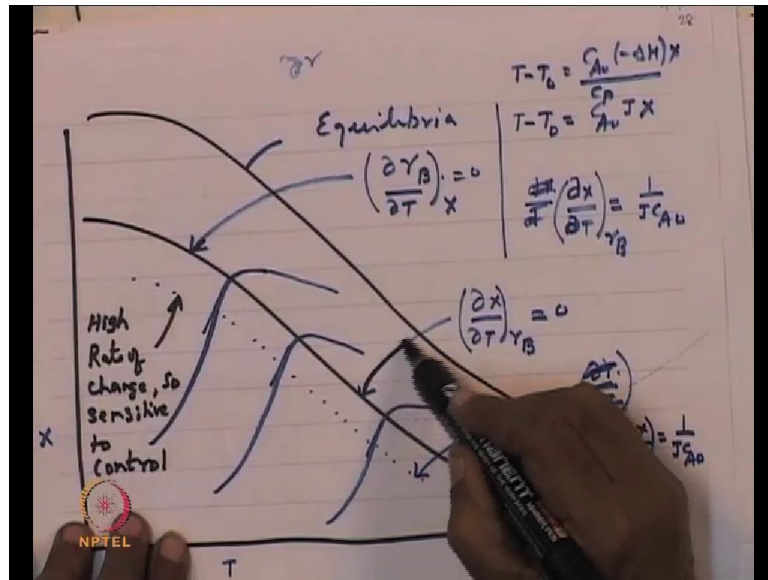 28
∂r
T-T₀ = C_A0 (-ΔH) X / Cp
T-T₀ = C_A0 J X
Equilibria
(∂r_B/∂T)_X = 0
(∂X/∂T)_r_B = 1/JC_A0
(∂X/∂T)_r_B = 0
High
Rate of
change, so
sensitive
to
control
= 1/JC_A0
X
T
NPTEL